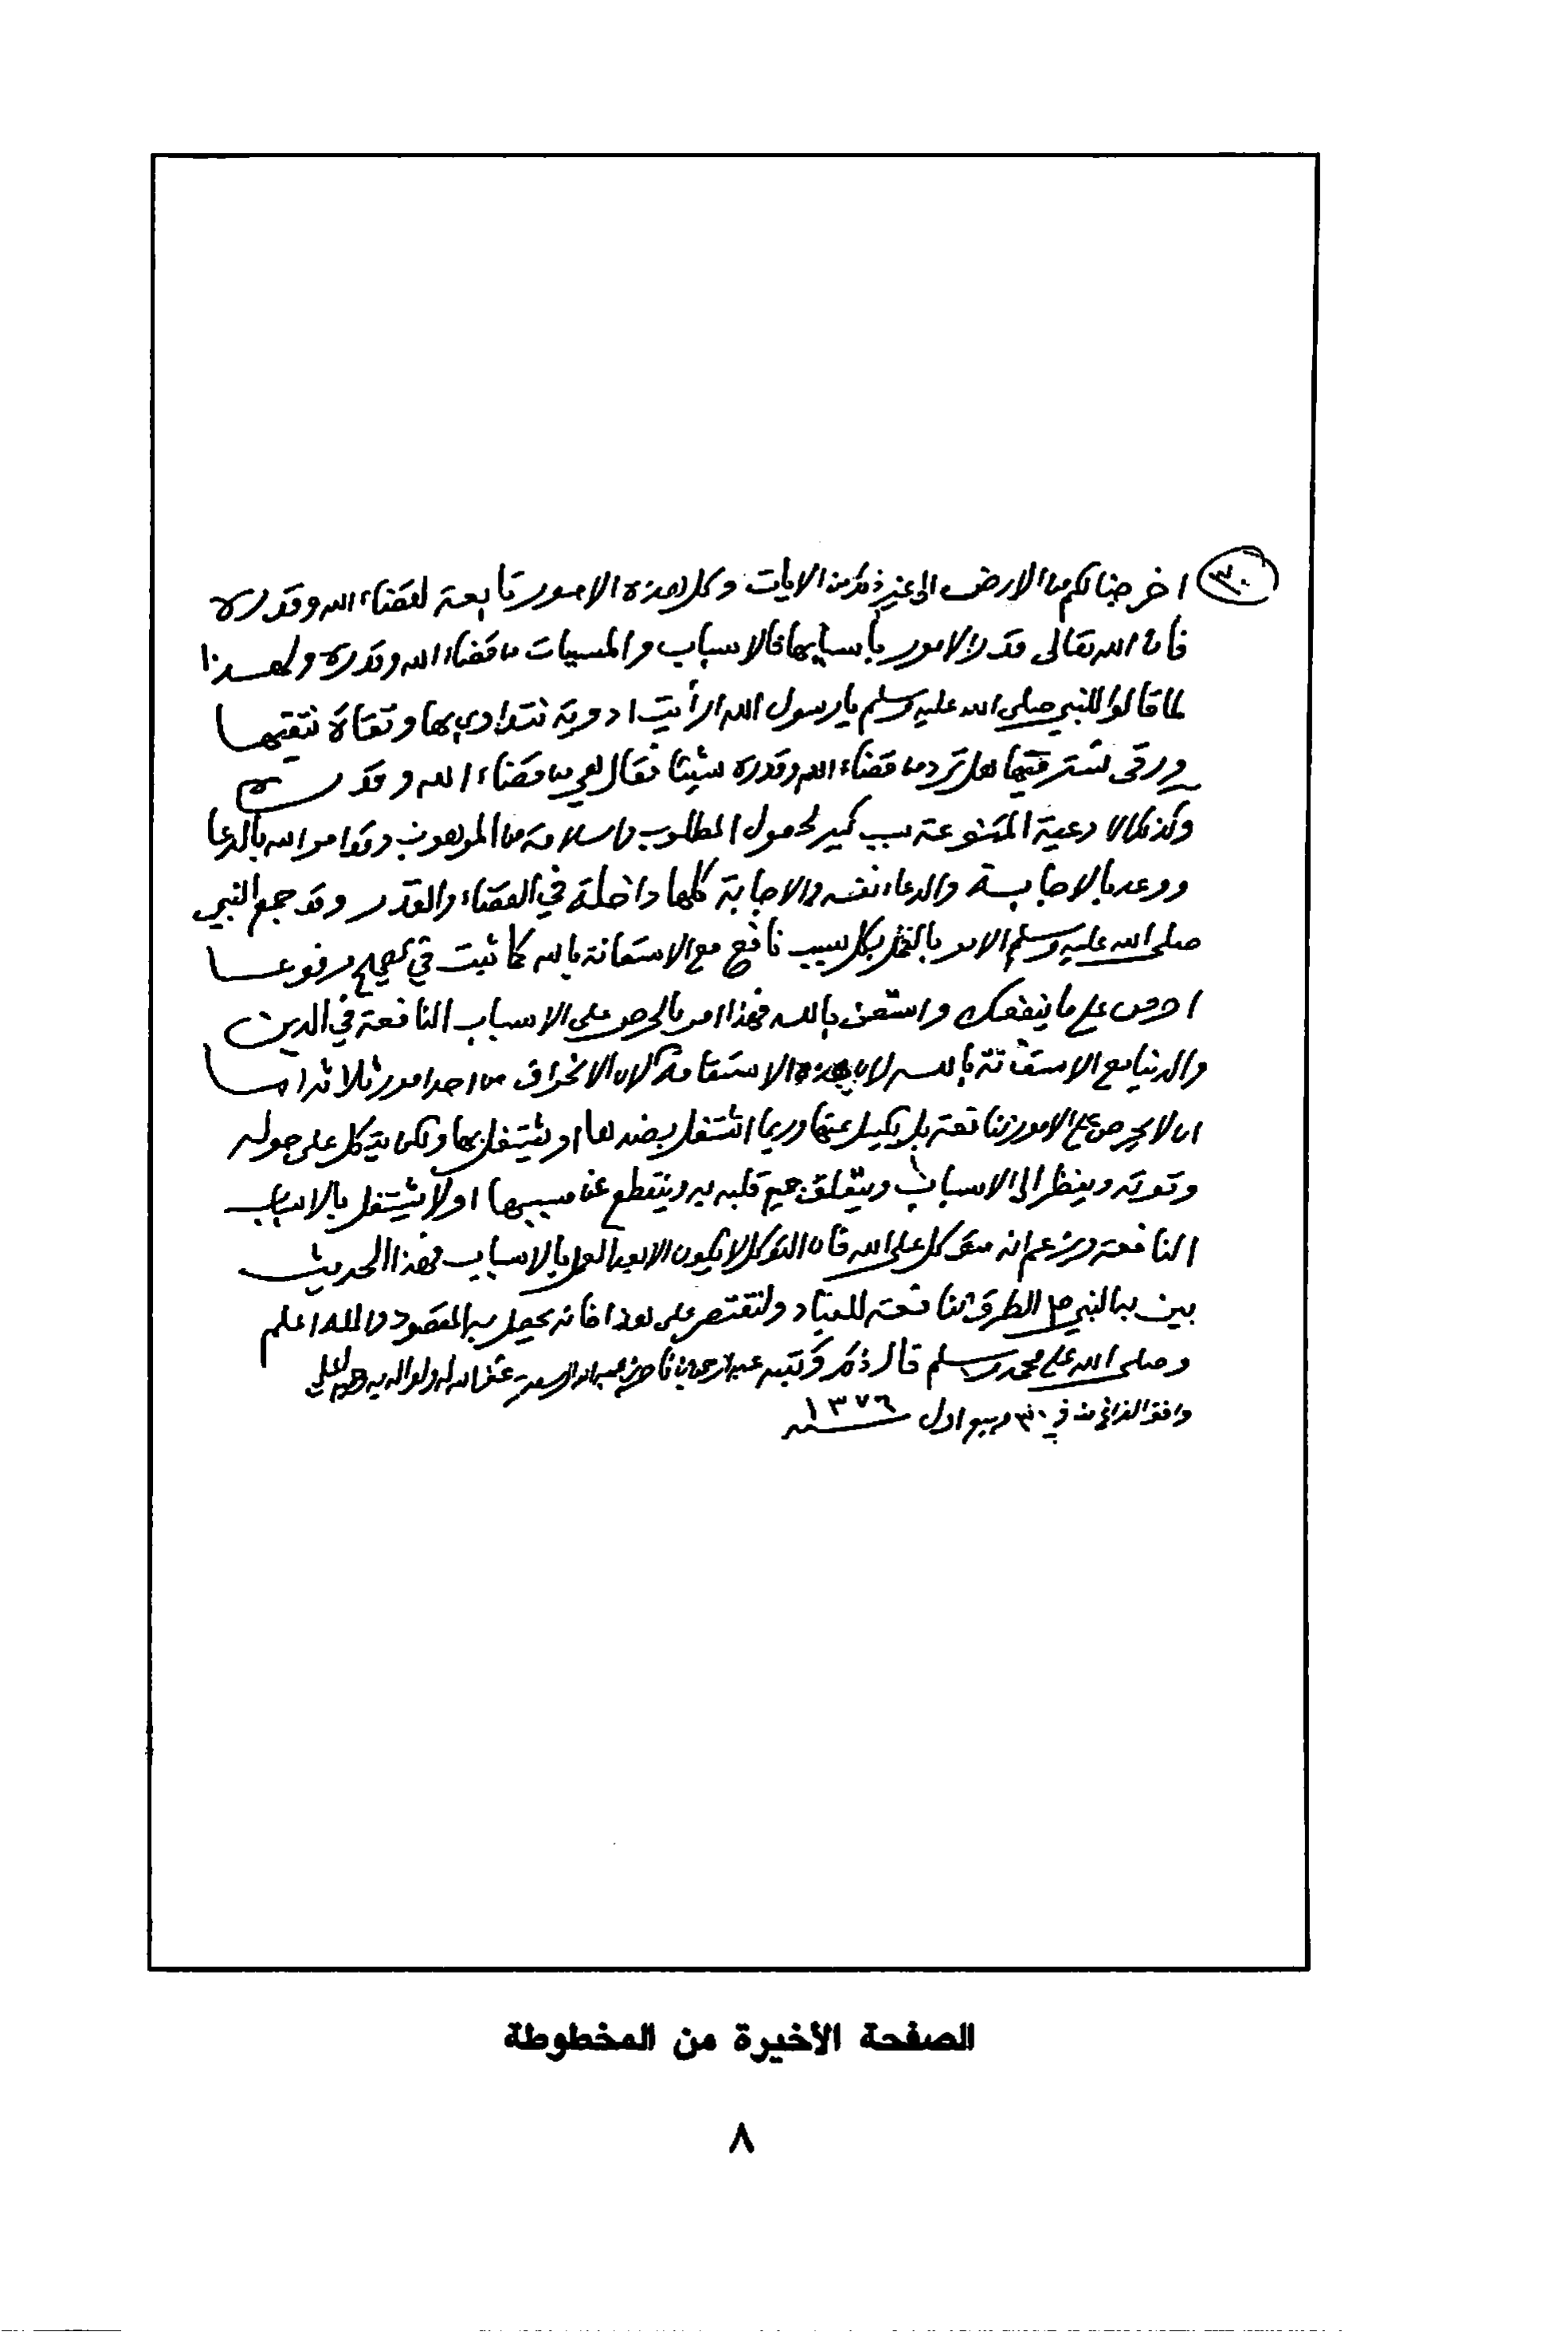 ٣٠
اخرجنا لكم من الارض الى غير ذلك من الايات وكل هذه الامور تابعة لقضاء الله وقدره
فان الله تعالى قدر الامور بأسبابها فالاسباب والمسببات من قضاء الله وقدره ولهذا
لما قالوا للنبي صلى الله عليه وسلم يا رسول الله ارأيت ادوية نتداوى بها وتقاة نتقيها
ورقى نسترقيها هل ترد من قضاء الله وقدره شيئا فقال هي من قضاء الله وقدره
وكذلك الادعية المتنوعة سبب كبير لحصول المطلوب والسلامة من المرهوب وقد امر الله بالدعا
ووعد بالاجابة والدعاء نفسه والاجابة كلها داخلة في القضاء والقدر وقد جمع النبي
صلى الله عليه وسلم الامر بالعمل بكل سبب نافع مع الاستعانة بالله كما ثبت في الصحيح مرفوعا
احرص على ما ينفعك واستعن بالله فهذا امر بالحرص على الاسباب النافعة في الدين
والدنيا مع الاستعانة بالله لان هذه الاستقامة لان الانحراف من احد امور ثلاثة اما
ان لا يحرص على الامور النافعة بل يكسل عنها وربما اشتغل بضدها او يشتغل بها ولكن يتكل على حوله
وقوته وينظر الى الاسباب ويتعلق جميع قلبه بها وينقطع عن مسببها او لا يشتغل بالاسباب
النافعة ويزعم انه متوكل على الله فان التوكل لا يكون الا بعد العمل بالاسباب فهذا الحديث
بين به النبي ص الطرق النافعة للعباد ولنقتصر على هذا فانه يحصل به المقصود والله اعلم
وصلى الله على محمد وسلم قال ذلك وكتبه عبد الرحمن بن ناصر بن عبد الله السعدي غفر الله له ولوالديه
وافق الفراغ منه في ٣٠ ربيع اول ١٣٧٦
الصفحة الأخيرة من المخطوطة
٨